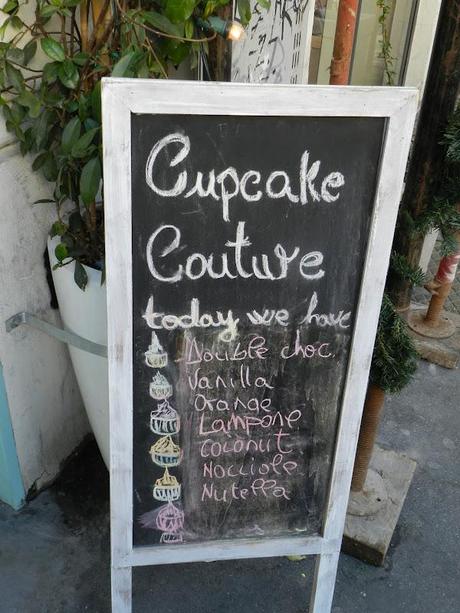 Cupcake
Couture
today we have
Double choc.
Vanilla
Orange
Lampone
coconut
Nocciole
Nutella